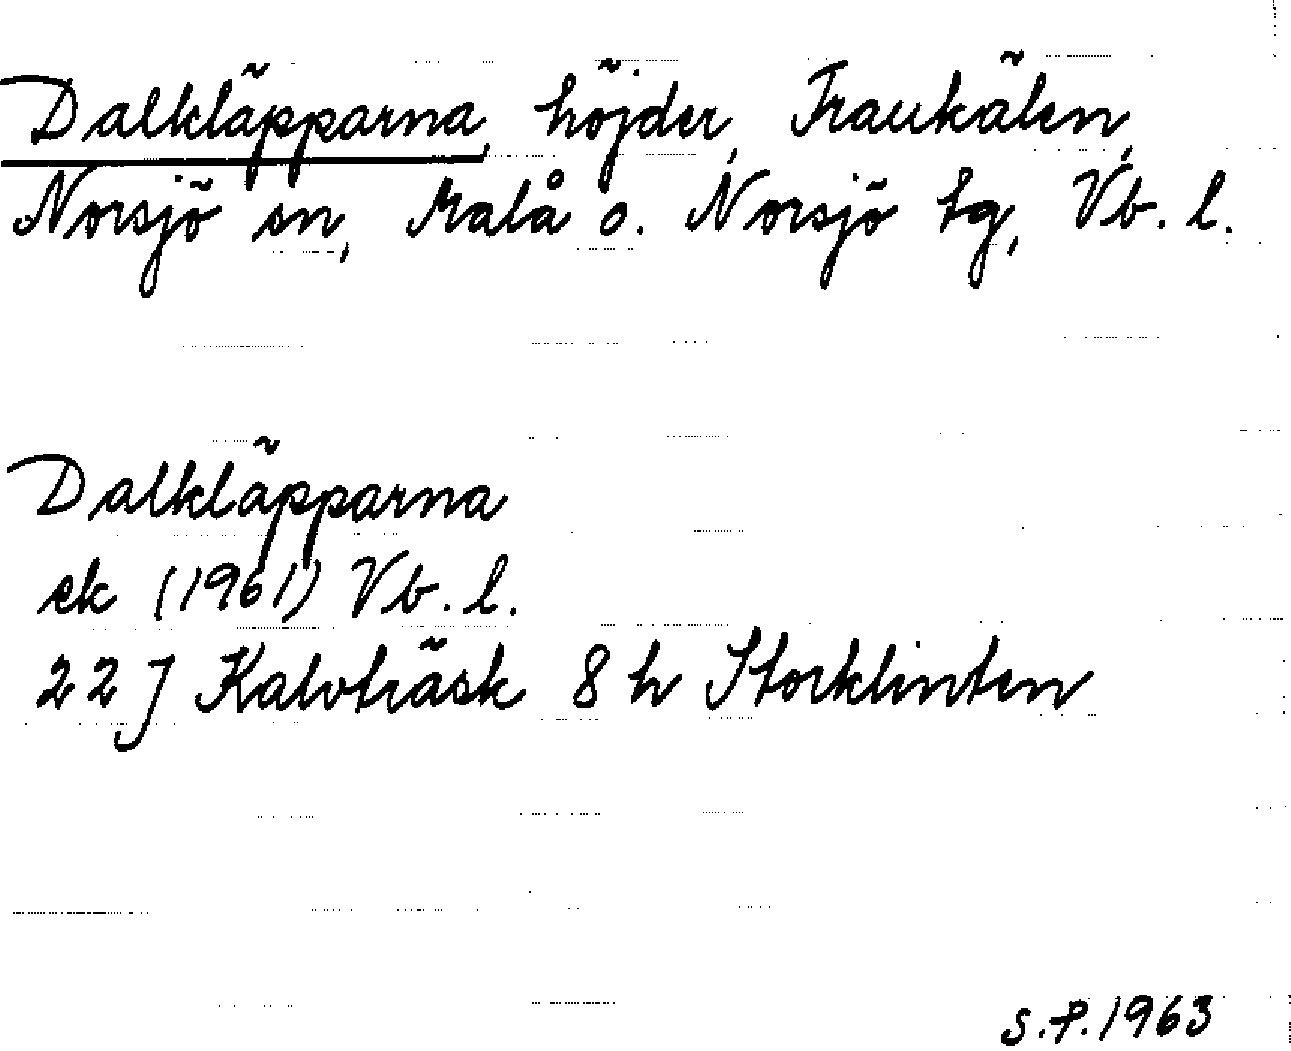 Dalkläpparna, höjder, Fraukälen,
Norsjö sn, Malå o. Norsjö tg, Vb. l.
Dalkläpparna
ek (1961) Vb. l.
22 J Kalvträsk 8 h Storklinten
S.P. 1963